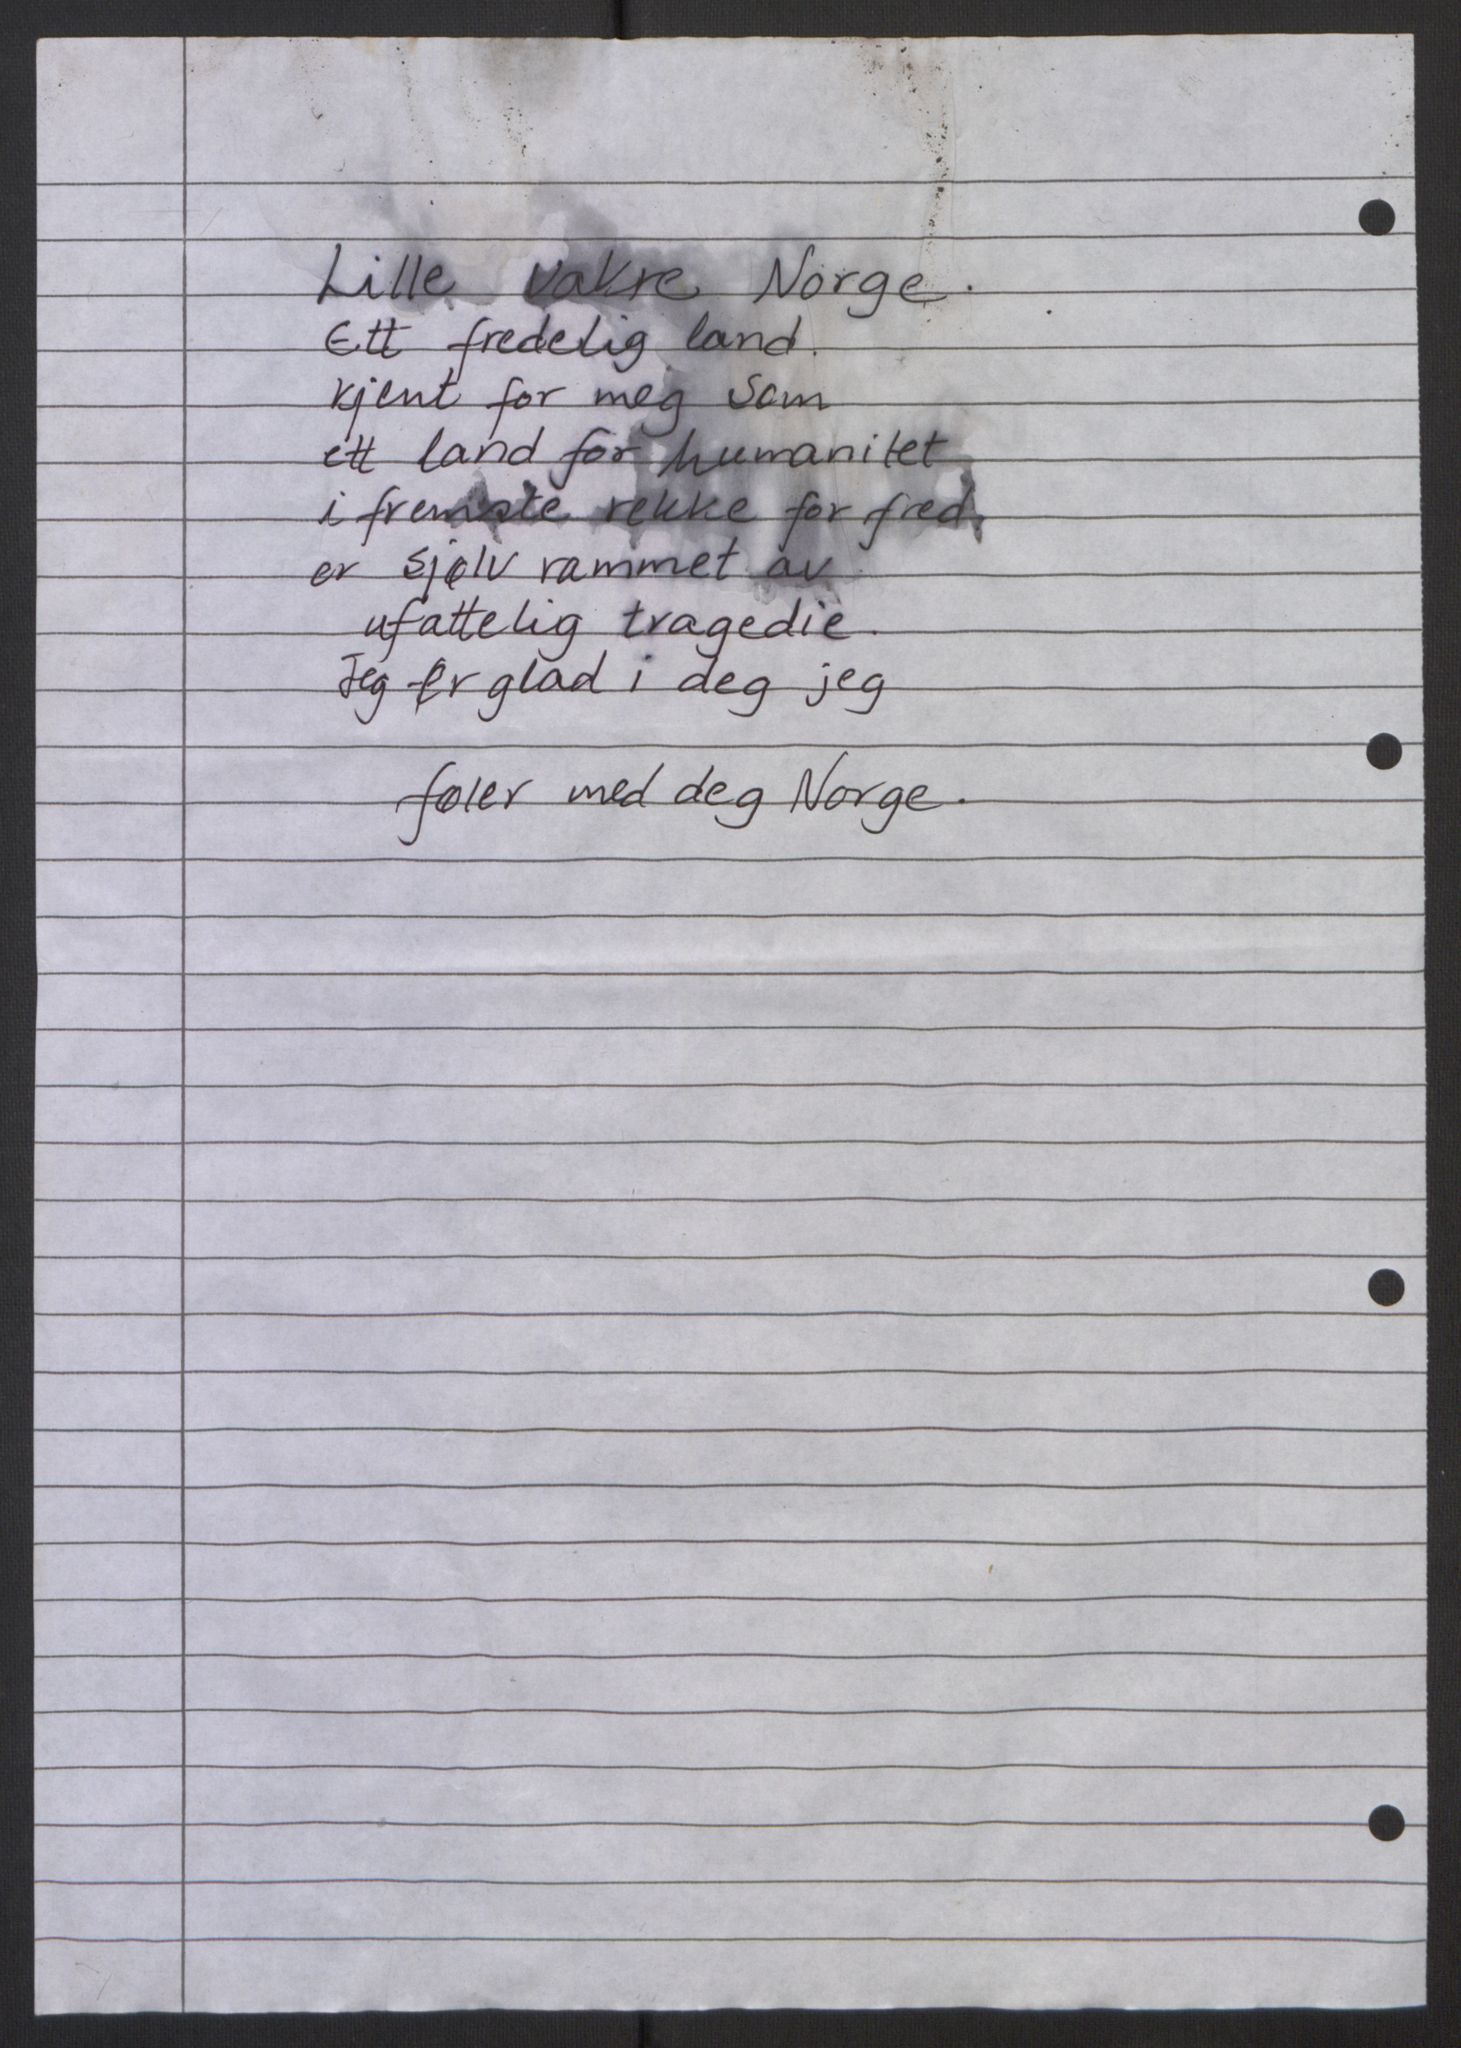 Lille vakre Norge.
Ett fredelig land.
kjent for meg som
ett land for humanitet
i fremste rekke for fred,
er sjølv rammet av
ufattelig tragedie.
Jeg er glad i deg jeg
føler med deg Norge.